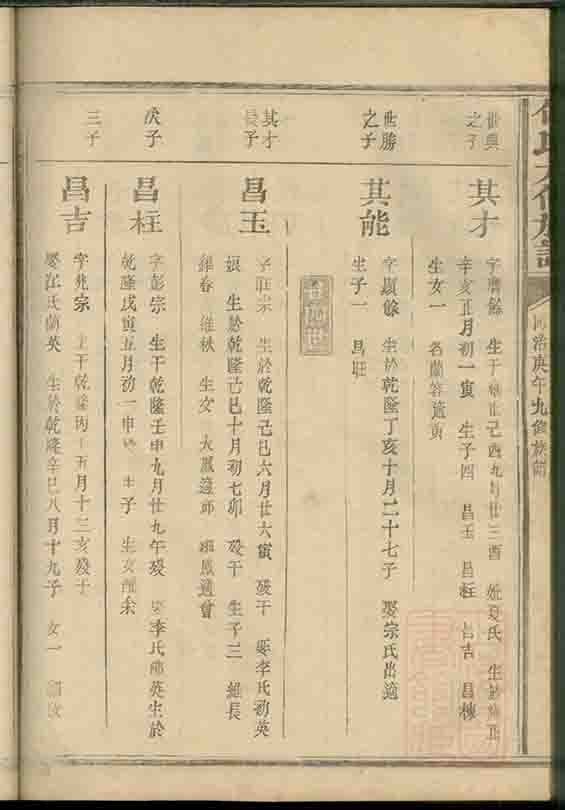 同治庚午九修族譜
世興
之子
其才
字齊餘 生于雍正己酉九月廿三酉 娶夏氏 生於雍正
辛亥正月初一寅 生子四 昌玉 昌柱 昌吉 昌棟
生女一 名蘭容適
世勝
之子
其能
字 餘 生於乾隆丁亥十月二十七子 娶宗氏出適
生子一 昌旺
其才
長子
昌玉
字莊宗 生於乾隆己巳六月廿六寅 歿于 娶李氏初英
娘 生於乾隆己巳十月初七卯 歿于 生子三 維長
維春 維秋 生女 大鳳適 適曾
次子
昌柱
字彭宗 生于乾隆壬申九月廿九午歿 娶李氏 英生於
乾隆戊寅五月初一申歿 生子 生女 余
三子
昌吉
字兆宗 生于乾隆丙子五月十二亥歿于
娶江氏蘭英 生於乾隆辛巳八月十九子 女一